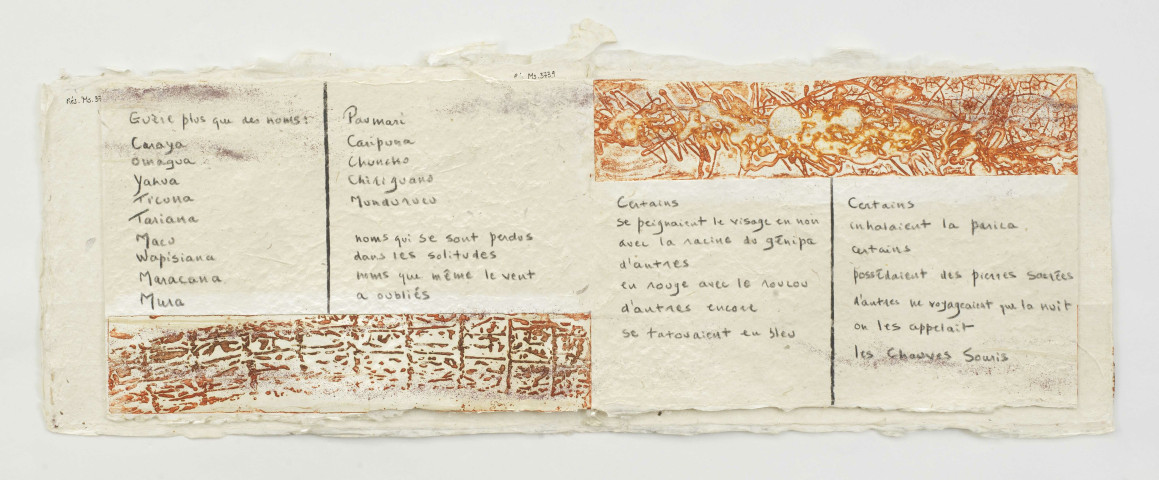 Rés. Ms. 37
Guère plus que des noms :
Caraya
Omagua
Yahua
Ticuna
Tariana
Macu
Wapisiana
Maracana
Mura
Paumari
Caripuna
Chuncho
Chiriguano
Mundurucu
noms qui se sont perdus
dans les solitudes
noms que même le vent
a oubliés
Ms. 3739
Certains
se peignaient le visage en noir
avec la racine du génipa
d'autres
en rouge avec le roucou
d'autres encore
se tatouaient en bleu
Certains
inhalaient la parica.
certains
possédaient des pierres sacrées
d'autres ne voyageaient que la nuit
on les appelait
les Chauves Souris